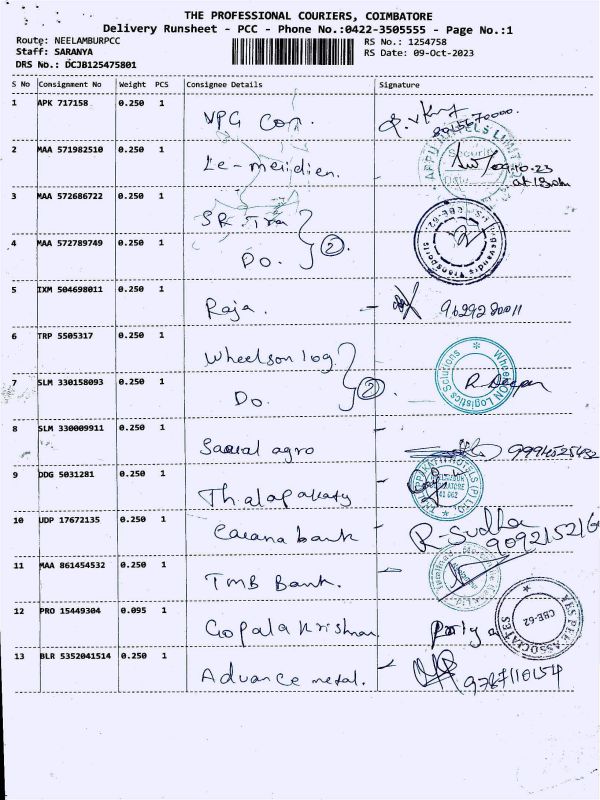 THE PROFESSIONAL COURIERS, COIMBATORE
Delivery Runsheet - PCC - Phone No.:0422-3505555 - Page No.:1
Route: NEELAMBURPCC
RS No.: 1254758
Staff: SARANYA
RS Date: 09-Oct-2023
DRS No.: DCJB125475801
S No Consignment No Weight PCS Consignee Details Signature
1 APK 717158 0.250 1
VPG Con.
2 MAA 571982510 0.250 1
Le-meridien. 09.10.23
3 MAA 572686722 0.250 1
SR. Tra
4 MAA 572789749 0.250 1
Do. 2
5 IXM 504698011 0.250 1
Raja.
6 TRP 5505317 0.250 1
Wheelson log
7 SLM 330158093 0.250 1
Do. 2 R. Deepan
WheelSON Logistics Solutions
8 SLM 330009911 0.250 1
agro
9 DDG 5031281 0.250 1
10 UDP 17672135 0.250 1
bank R-Sudha
11 MAA 861454532 0.250 1
TMB Bank.
12 PRO 15449304 0.095 1
Gopala Krishnan Poliya
YES PEE ASSOCIATES
CBE-62
13 BLR 5352041514 0.250 1
Advance metal. 9787110154